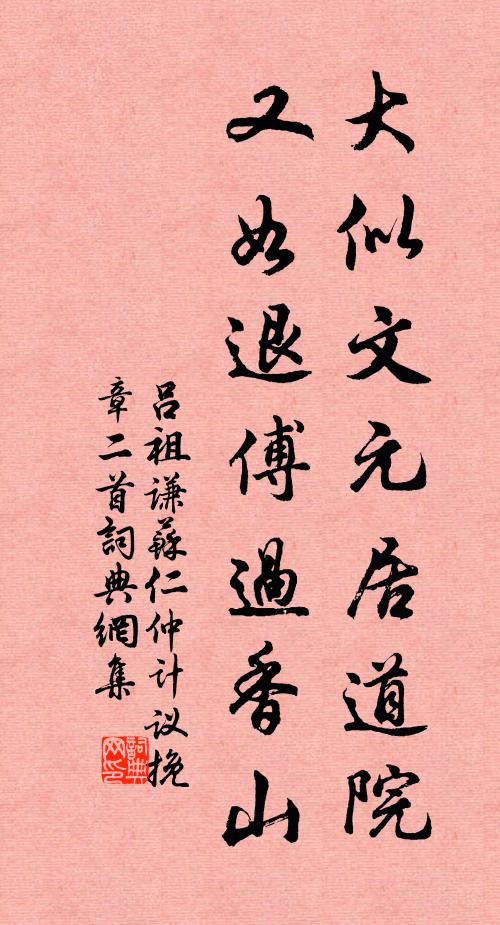 大似文元居道院
又如退傅過香山
吕祖谦蘇仁仲计议挽
章二首詞典網集
詞典
网印